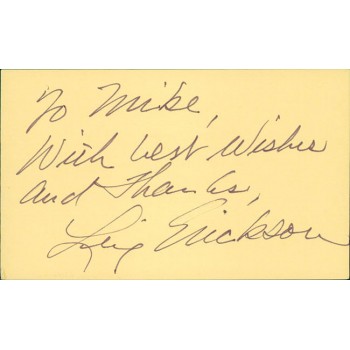 To Mike,
With best Wishes
and Thanks,
Leif Erickson